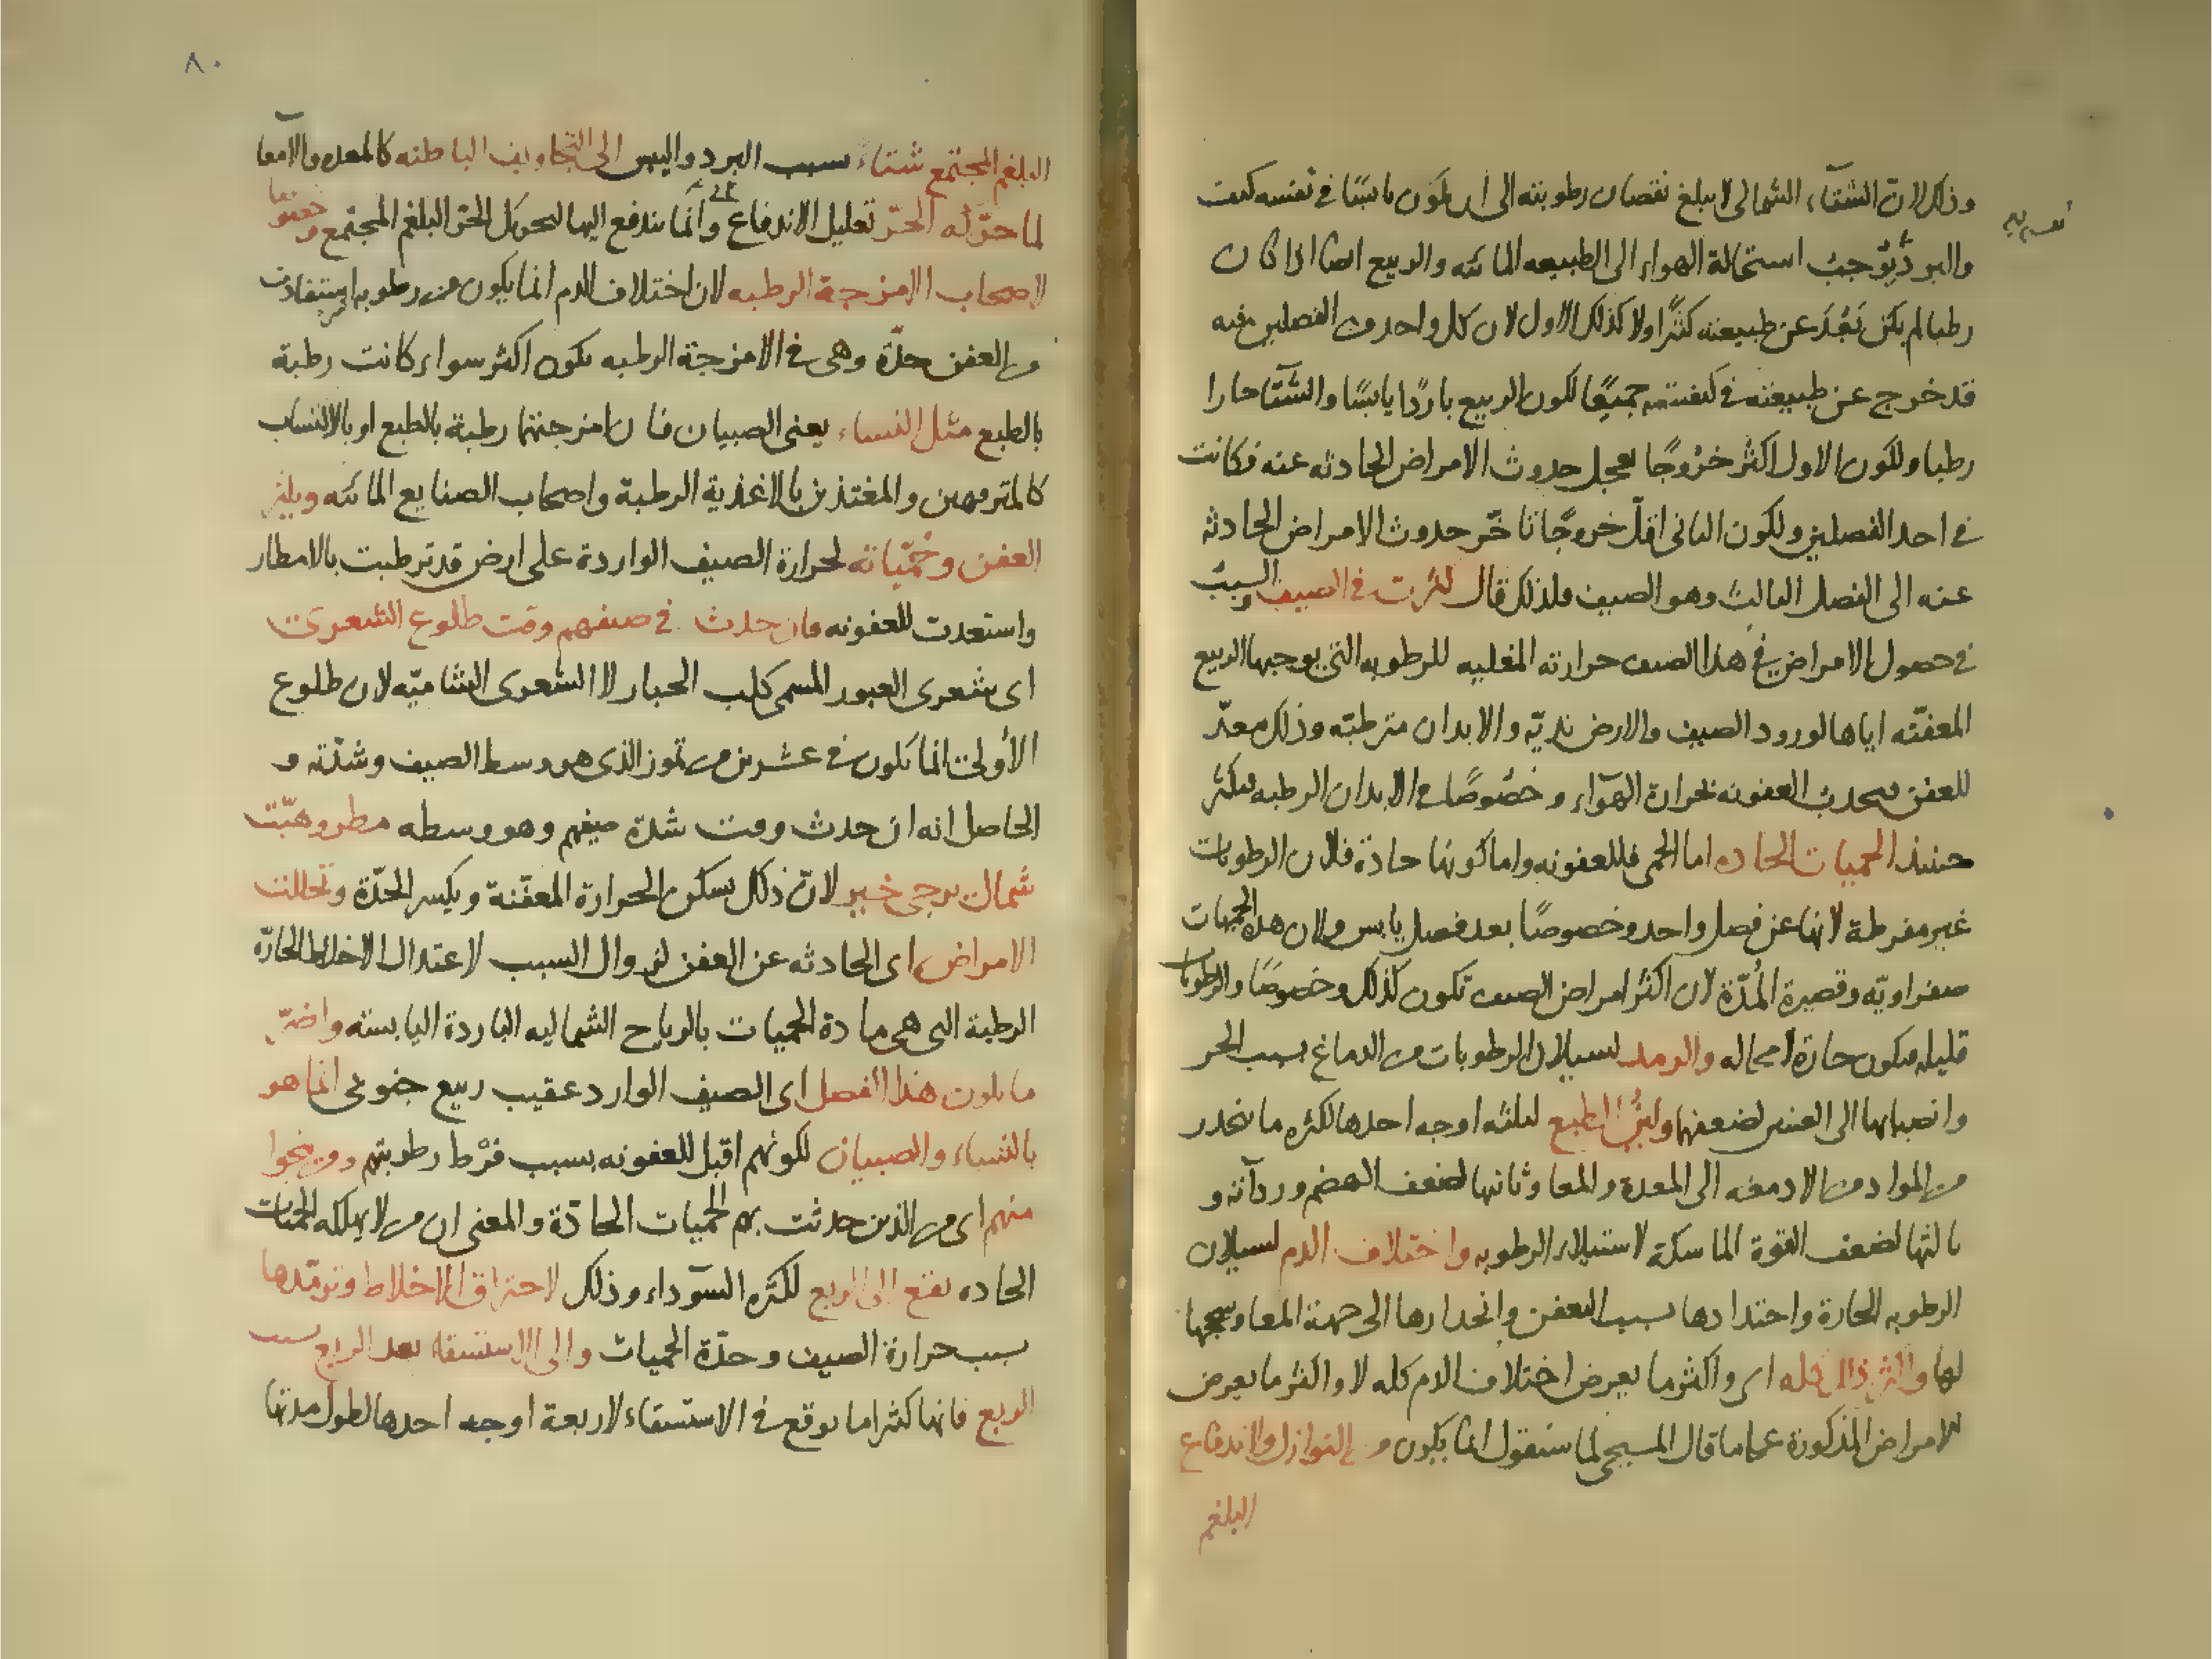 وذلك لان الشتاء الشمالى لا يبلغ نقصان رطوبته الى ان يكون يابسًا فى نفسه كيف
والبرد يُوجبُ استحالة الهواء الى الطبيعه المائيه والربيع ايضا اذا كان
رطبا لم يكن بَعُدَ عن طبيعته كثيرًا ولا كذلك الاول لان كل واحد من الفصلين فيه
قد خرج عن طبيعته فى كيفيتيه جميعًا لكون الربيع باردًا يابسًا والشتا حارا
رطبا ولكون الاول اكثر خروجًا يعجل حدوث الامراض الحادثه عنه فكانت
فى احد الفصلين ولكون الثانى اقلّ خروجًا تاخّر حدوث الامراض الحادثه
عنه الى الفصل الثالث وهو الصيف ولذلك قال كثرت فى الصيف والسبب
فى حصول الامراض فى هذا الصيف حرارته المغليه للرطوبه التى يوجبها الربيع
المعفنه اياها لورود الصيف والارض نديّه والابدان مترطبّه وذلك معدّ
للعفن فيحدث العفونه لحرارة الهوآء و خصُوصًا فى الابدان الرطبه فيكثر
حينئذ الحميات الحاده اما الحمى فللعفونه واما كونها حادة فلان الرطوبات
غير مفرطة لانها عن فصل واحد وخصوصًا بعد فصل يابس ولان هذه الحميات
صفراويّه وقصيرة المُدّة لان اكثر امراض الصيف تكون كذلك وخصوصًا والرطوبات
قليله فيكون حادة لا محاله والرمد لسيلان الرطوبات من الدماغ بسبب الحر
وانصبابها الى العينين لضعفها ولينُ الطبع لثلثه اوجه احدها لكثره ما ينحدر
من المواد من الادمغه الى المعدة والمعا وثانيها لضعف الهضم وردآته و
ثالثها لضعف القوة الماسكة لاستيلاء الرطوبه واختلاف الدم لسيلان
الرطوبه الحارة واحتدادها بسبب التعفن وانحدارها الى جهة المعا وسحجها
لها واكثر ذلك كله اى واكثر ما يعرض اختلاف الدم كله لا واكثر ما يعرض
الامراض المذكورة على ما قال المسيحى لما سنقول انما يكون من النوازل واندفاع
البلغم
٨٠
البلغم المجتمع شتاءً بسبب البرد واليبس الى التجاويف الباطنه كالمعده والامعا
لما حرّكه الحرّ تعليل الاندفاع وانما يندفع اليها لتحريك الحر البلغم المجتمع و خصوصا
لاصحاب الامزجة الرطبه لان اختلاف الدم انما يكون من رطوبه استفادت
من العفن حدّة وهى فى الامزجة الرطبه يكون اكثر سواء كانت رطبة
بالطبع مثل النساء يعنى الصبيان فان امزجتها رطبة بالطبع او بالاكتساب
كالمترفهين والمغتذين بالاغذية الرطبة واصحاب الصنايع المائيه ويكثر
العفن وحُمّياته لحرارة الصيف الواردة على ارض قد ترطبت بالامطار
واستعدت للعفونه فان حدث فى صيفهم وقت طلوع الشعرى
اى شعرى العبور المسمى كلب الجبار لا الشعرى الشاميّه لان طلوع
الأولى انما يكون فى عشرين من تموز الذى هو وسط الصيف وشدّته و
الحاصل انه ان حدث وقت شدة صيفهم وهو وسطه مطر وهبّت
شمال يرجى خير لانّ ذلك يسكن الحرارة المعفّنة ويكسر الحدّة وتحللت
الامراض اى الحادثه عن العفن لزوال السبب لاعتدال الاخلاط الحادّة
الرطبة التى هى مادة الحميات بالرياح الشماليه الباردة اليابسته واضرّ
ما يكون هذا الفصل اى الصيف الوارد عقيب ربيع جنوبى انما هو
بالنساء والصبيان لكونهم اقبل للعفونه بسبب فرْط رطوبتهم ومن ينجوا
منهم اى من الذين حدثت بهم الحميات الحادّة والمعنى ان من لا يهلكه الحميات
الحاده يقع الى الربع لكثرة السوداء وذلك لاحتراق الاخلاط وترمّدها
بسبب حرارة الصيف وحدّة الحميات والى الاستسقاء بعد الربع بسبب
الربع فانها كثيرا ما يوقع فى الاستسقاء لاربعة اوجه احدها لطول مدتها